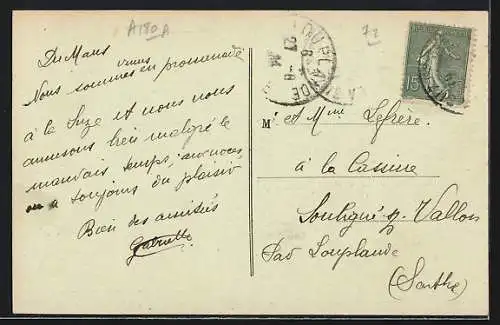 A180A
72
LOUPLANDE
6
21 - 8
15
Du Mans
Nous sommes en promenade
à la Suze et nous nous
amusons bien malgré le
mauvais temps, aux noces
on a toujours du plaisir
Bien des amitiés
Gabrielle
M. et Mme Lefrère.
à la Cassine
Souligné s/ Vallon
Par Louplande
(Sarthe)